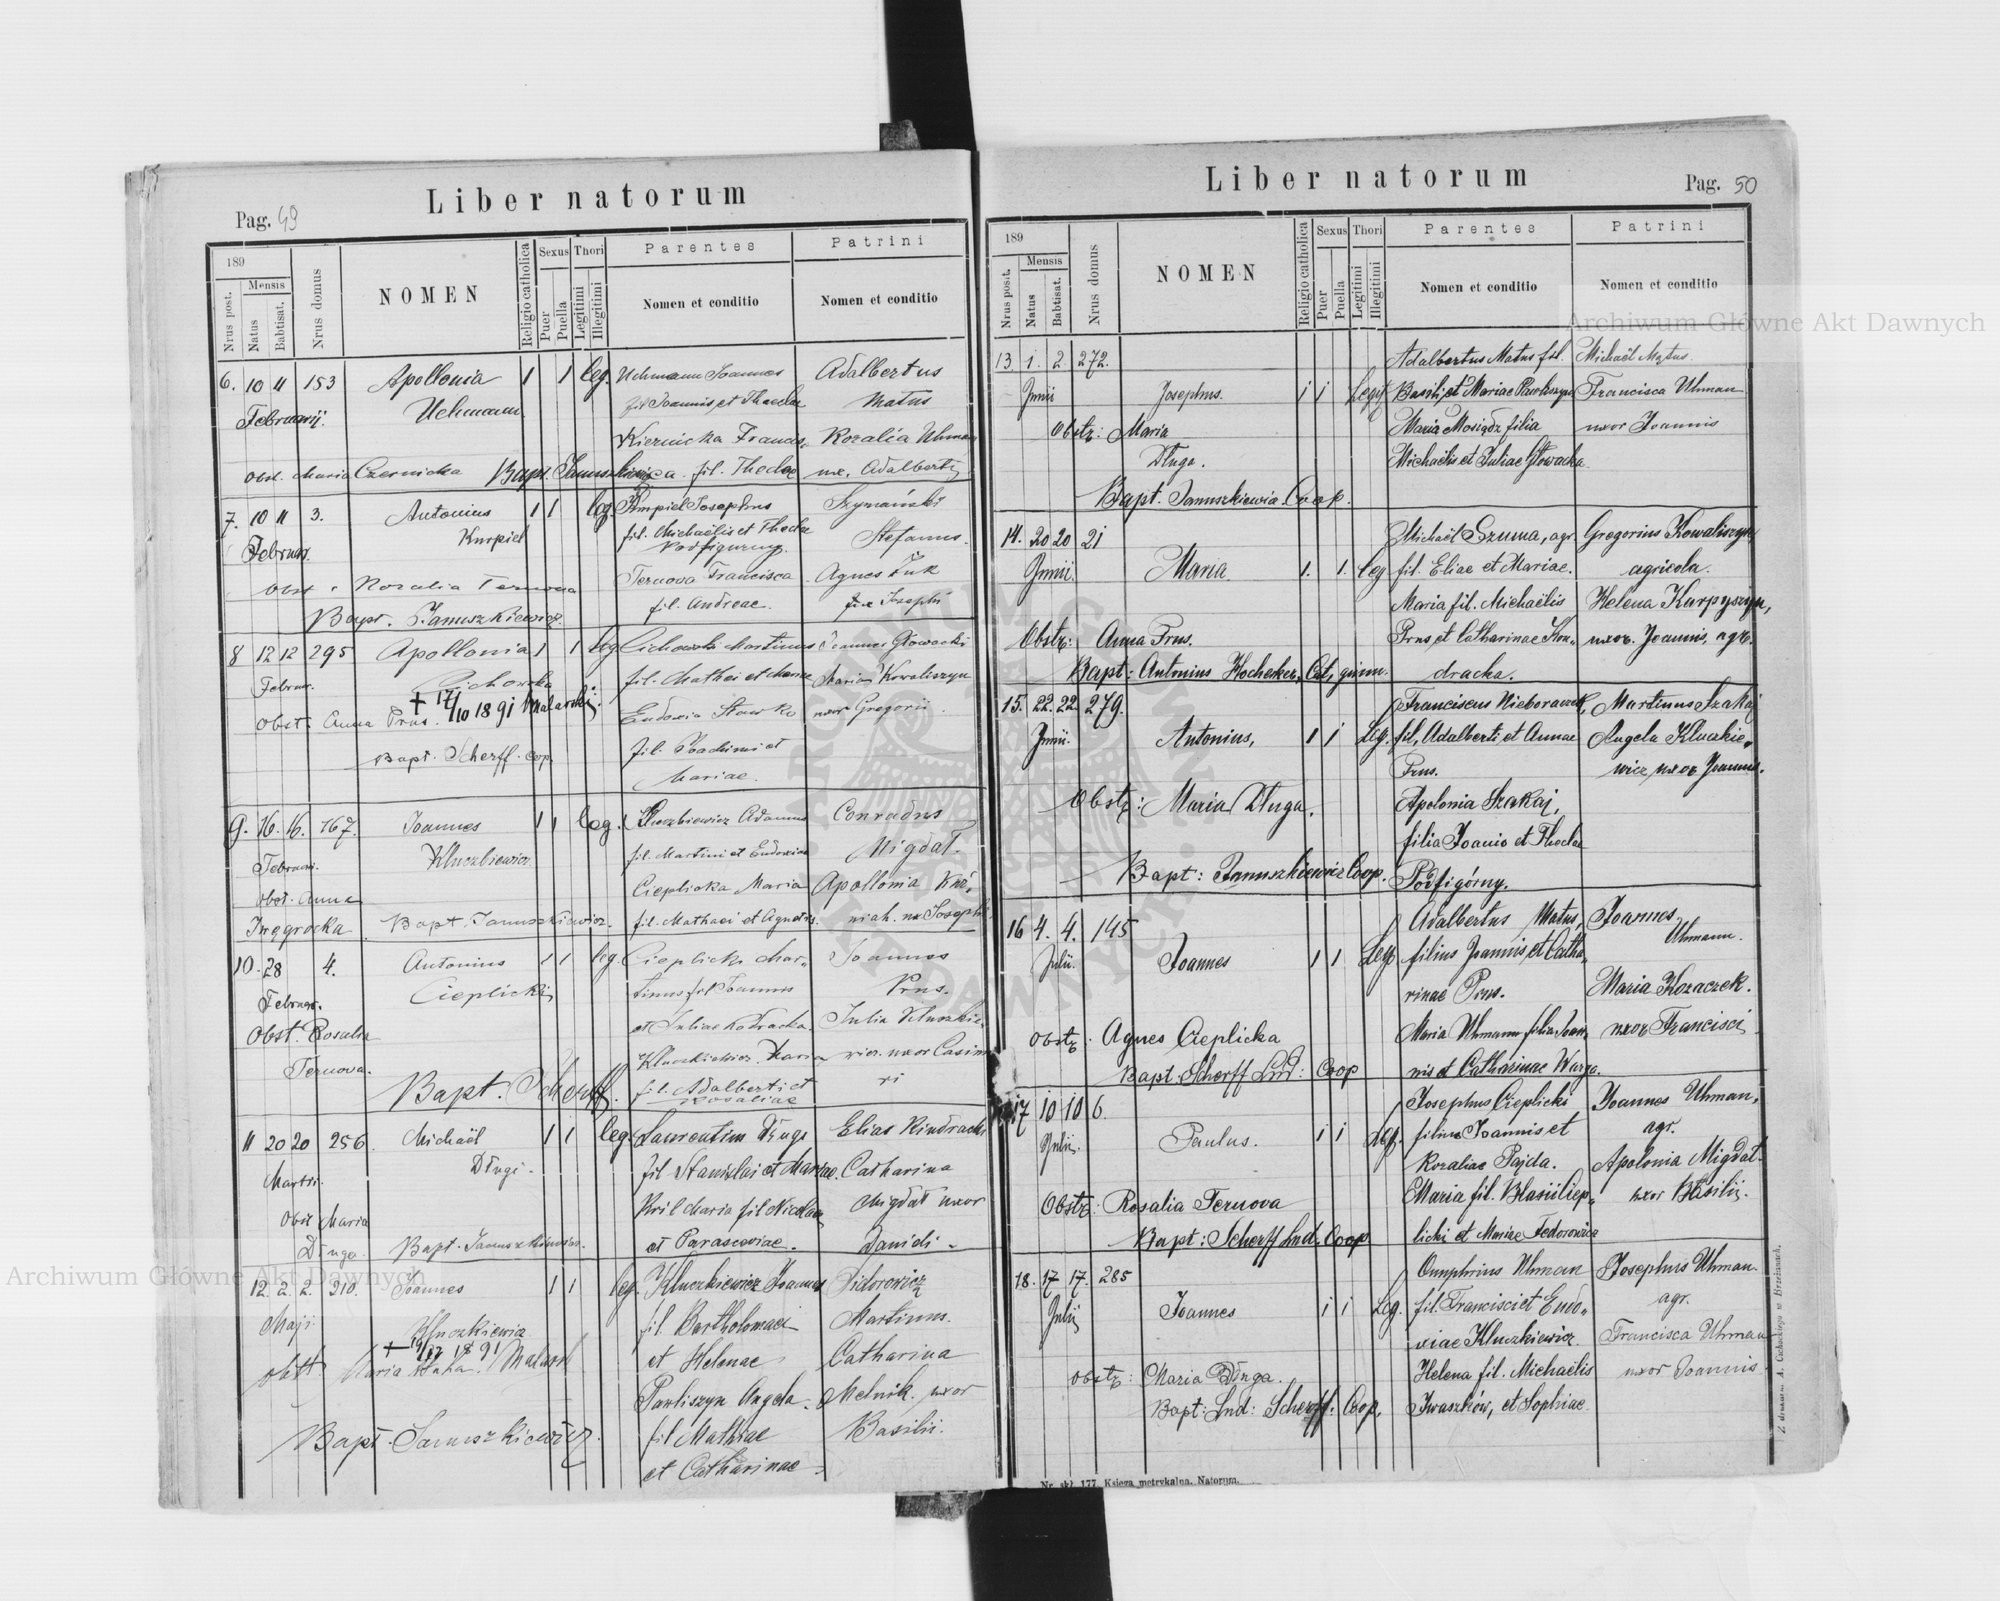 Liber natorum
Pag. 49
189
Mensis
Nrus post.
Natus
Babtisat.
Nrus domus
NOMEN
Religio catholica
Sexus
Puer
Puella
Thori
Legitimi
Illegitimi
Parentes
Nomen et conditio
Patrini
Nomen et conditio
6. 10 11 153 Apollonia 1 1 leg. Uchmann Joannes Adalbertus
Februarij. Uchmann fil Joannis et Theclae Matus
Kiernicka Francis. Rozalia Uhman
Obst. Maria Czernicka Bapt. Januszkiewicz fil. Theclae ux. Adalberti
7. 10 11 3. Antonius 1 1 leg. Kurpiel Josephus Szymański
Februar. Kurpiel fil. Michaëlis et Theclae Stefanus.
Podfigurny.
Obst. Rozalia Ternova Ternova Francisca Agnes Żuk
Bapt. Januszkiewicz fil. Andreae. Josephi
8 12 12 295 Apollonia 1 1 leg Cichowski Martinus Joannes Głowacki
Februar. Cichowska fil. Mathei et Maria Kowaliszyn
+ 17/10 1891
Obst. Anna Prus. Eudoxia Stawko uxor Gregorii
Bapt. Scherff. Cop. fil. Joachimi et
Mariae.
9. 16. 16. 167. Joannes 1 1 leg. Kluczkiewicz Adamus Conradus
Februari. Kluczkiewicz fil. Martini et Eudoxiae Migdał.
obst. Anna Cieplicka Maria Apollonia
Bapt. Januszkiewicz. fil. Mathaei et Agnetis. ux Josephi
10. 28 4. Antonius 1 1 leg Cieplicki Mar„ Joannes
Februar. Cieplicki tinus fil Joannis Prus.
Obst. Rosalia et Juliae Julia Kluczkie„
Ternova. Kluczkiewicz Maria vicz. uxor Casimi
Bapt. Scherff. fil. Adalberti et ri
Rosaliae
11 20 20 256. Michaël 1 1 leg. Laurentius Długi Elias Kindracki
Martii. Długi. fil Stanislai et Mariae. Catharina
Kril Maria fil Nicolai Migdał uxor
Obst Maria et Parasceviae. Danieli
Długa. Bapt. Januszkiewicz.
12. 2. 2. 210. Joannes 1 1 leg. Kluczkiewicz Joannes Sidorowicz
Maji Kluczkiewicz fil. Bartholomaei Martinus.
et Helenae Catharina
obst. Maria Pawliszyn Angela Melnik. uxor
Bapt. Januszkiewicz. fil Mathiae Basilii.
et Catharinae
Liber natorum
Pag. 50
189
Mensis
Nrus post.
Natus
Babtisat.
Nrus domus
NOMEN
Religio catholica
Sexus
Puer
Puella
Thori
Legitimi
Illegitimi
Parentes
Nomen et conditio
Patrini
Nomen et conditio
13 1. 2. 272. Adalbertus Matus fil. Michaël Matus.
Junii Josephus. 1 1 Legit Basilij et Mariae Pawliszyn Francisca Uhman
Obstz: Maria Maria Mosiądz filia uxor Joannis
Długa. Michaëlis et Juliae Głowacka.
Bapt. Januszkiewicz. Coop.
14. 20 20 21 Michaël Szuma, agr. Gregorius Kowaliszyn
Junii. Maria 1. 1. leg fil. Eliae et Mariae. agricola.
Maria fil. Michaëlis Helena Karpyszyn,
Obstz: Anna Prus. Prus et Catharinae Kon„ uxor. Joannis, agr.
Bapt: Antonius Hocheker, Cat, gimn. dracka.
15. 22. 22. 279. Franciscus Nieboraczek, Martinus Szakaj
Junii. Antonius, 1 1 Leg. fil, Adalberti et Annae Angela Kluczkie„
Prus. wicz, uxor Joannis.
Obstz: Maria Długa. Apolonia Szakaj,
filia Joanis et Theclae
Bapt: Januszkiewicz Coop. Podfigórny.
16 4. 4. 145 Adalbertus Matus, Joannes
Julii. Joannes 1 1 Leg filius Joannis et Catha„ Uhmann.
rinae Prus. Maria Kozaczek.
Obstz. Agnes Cieplicka Maria Uhmann filia Joan„ uxor Francisci
Bapt. Scherff Lud: Coop nis et Catharinae Warga.
17 10 10 6. Josephus Cieplicki Joannes Uhman,
Julii. Paulus. 1 1 Leg. filius Joannis et agr.
Rozaliae Pajda. Apolonia Migdał
Obstz: Rosalia Ternova Maria fil. Blasii Ciep„ uxor Basilii.
Bapt: Scherff Lud. Coop licki et Mariae Fedorowicz
18. 17 17. 285 Onuphrius Uhman Josephus Uhman.
Julij Joannes 1 1 Leg. fil. Francisci et Eudo„ agr.
xiae Kluczkiewicz. Francisca Uhman
obstz: Maria Długa. Helena fil. Michaëlis uxor Joannis.
Bapt: Lud: Scherff. Coop. Iwaszków, et Sophiae.
Nr. skł. 177. Księga metrykalna. Natorum.
Archiwum Główne Akt Dawnych
Archiwum Główne Akt Dawnych